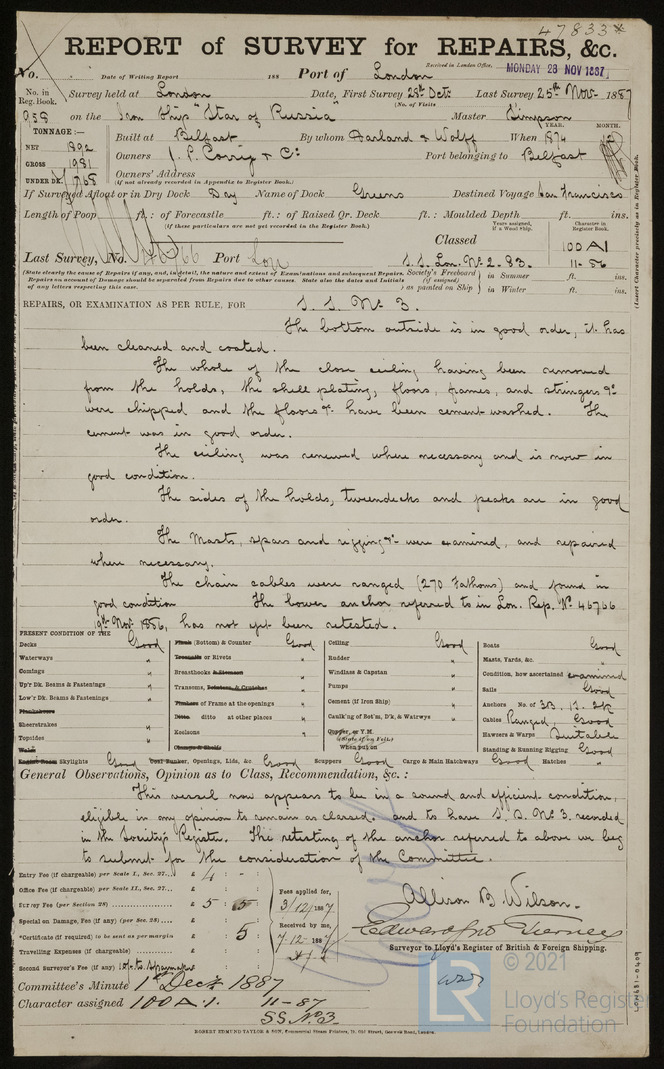 47833*
REPORT of SURVEY for REPAIRS, &c.
Received in London Office, MONDAY 28 NOV 1887
No. Date of Writing Report 188 Port of London
No. in Reg. Book. Survey held at London Date, First Survey 28th Oct. Last Survey 25th Nov. 1887
(No. of Visits
958 on the Iron Ship "Star of Russia" Master Simpson
TONNAGE:— YEAR. MONTH.
NET 1892 Built at Belfast By whom Harland & Wolff When 1874 12
GROSS 1981 Owners J. P. Corry & Co. Port belonging to Belfast
UNDER DK. 1768 Owners' Address
(If not already recorded in Appendix to Register Book.)
If Surveyed Afloat or in Dry Dock Dry Name of Dock Greens Destined Voyage San Francisco
Length of Poop ft.: of Forecastle ft.: of Raised Qr. Deck ft.: Moulded Depth ft. ins.
(If these particulars are not yet recorded in the Register Book.)
Years assigned, if a Wood Ship. Character in Register Book.
Classed 100 A1
Last Survey, No. 46766 Port Lon S.S. Lon. No. 2. 83. 11-86
(State clearly the cause of Repairs if any, and, in detail, the nature and extent of Examinations and subsequent Repairs. Repairs on account of Damage should be separated from Repairs due to other causes. State also the dates and Initials of any letters respecting this case.
Society's Freeboard (if assigned) as painted on Ship in Summer ft. ins.
in Winter ft. ins.
(Insert Character precisely as in Register Book.
REPAIRS, OR EXAMINATION AS PER RULE, FOR S. S. No. 3.
The bottom outside is in good order, it has
been cleaned and coated.
The whole of the close ceiling having been removed
from the holds, the shell plating, floors, frames, and stringers &c
were chipped and the floors &c have been cement-washed. The
cement was in good order.
The ceiling was renewed where necessary and is now in
good condition.
The sides of the holds, tweendecks and peaks are in good
order.
The Masts, spars and rigging &c were examined, and repaired
where necessary.
The chain cables were ranged (270 Fathoms) and found in
good condition The bower anchor referred to in Lon. Rep. No. 46766
19th Nov. 1886, has not yet been retested.
PRESENT CONDITION OF THE
Decks Good
Waterways "
Comings "
Up'r Dk. Beams & Fastenings "
Low'r Dk. Beams & Fastenings "
Plankshears
Sheerstrakes "
Topsides "
Wales
Engine Room Skylights Good
Plank (Bottom) & Counter Good
Treenails or Rivets "
Breasthooks & Stemson "
Transoms, Pointers, & Crutches "
Timbers of Frame at the openings "
Ditto ditto at other places "
Keelsons "
Clamps & Shelfs
Coal Bunker, Openings, Lids, &c. Good
Ceiling Good
Rudder "
Windlass & Capstan "
Pumps "
Cement (if Iron Ship) "
Caulk'ng of Bot'm, D'k, & Watrwys "
Copper, or Y.M.
When put on
Scuppers Good Cargo & Main Hatchways Good
Boats Good
Masts, Yards, &c. "
Condition, how ascertained examined
Sails Good
Anchors No. of 3B, 1S, 2K
Cables Ranged, Good
Hawsers & Warps Suitable
Standing & Running Rigging Good
Hatches "
General Observations, Opinion as to Class, Recommendation, &c.:
This vessel now appears to be in a sound and efficient condition,
eligible in my opinion to remain as classed. and to have S. S. No. 3. recorded
in the Society's Register. The retesting of the anchor referred to above we beg
to submit for the consideration of the Committee.
Entry Fee (if chargeable) per Scale I., Sec. 27... £ 4 : - :
Office Fee (if chargeable) per Scale II., Sec. 27... £ : :
Survey Fee (per Section 28) £ 5 : 5 :
Special on Damage, Fee (if any) (per Sec. 28) £ : :
*Certificate (if required) to be sent as per margin £ : 5 :
Travelling Expenses (if chargeable) £ : :
Second Surveyor's Fee (if any) £ : :
Fees applied for, 3/12/1887
Received by me, 7-12-1887
Allison B. Wilson.
Edward Jno Tierney
Surveyor to Lloyd's Register of British & Foreign Shipping.
Committee's Minute 1st Decr. 1887
Character assigned 100 A.1. 11-87
SS No. 3.
ROBERT EDMUND TAYLOR & SON, Commercial Steam Printers, 19, Old Street, Goswell Road, London.
LR
© 2021
Lloyd's Register
Foundation
LON681-0409